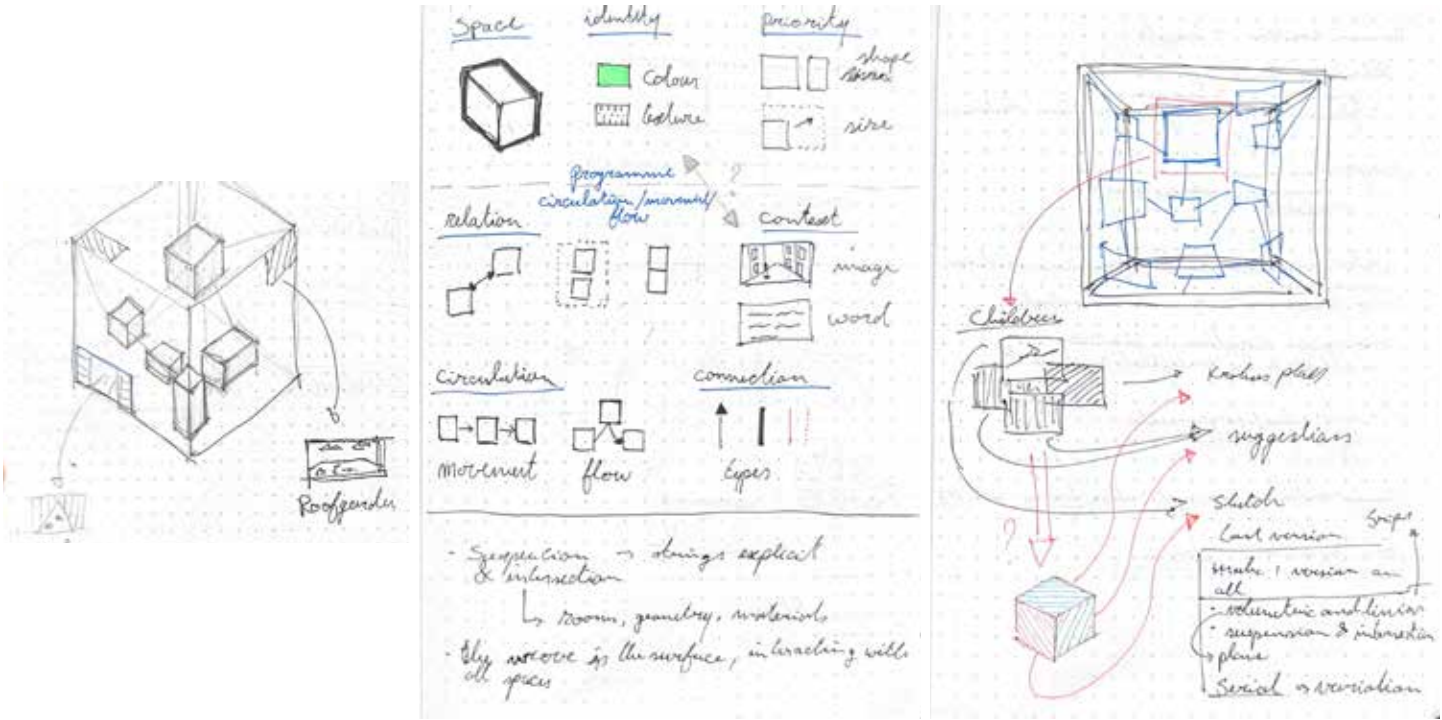 Roofgarden
Space
identity
priority
Colour
texture
shape
size
programme
?
circulation/movement/
flow
relation
context
image
word
circulation
connection
movement
flow
types
- Suspension → strings explicit
& intersection
↳ rooms, geometry, materials
- the weave is the surface, interacting with
all spaces
Children
suggestions
Sketch
?
Last version
make 1 version on
all
- volumetric and linear
- suspension & intersection
plane
Serial → variation